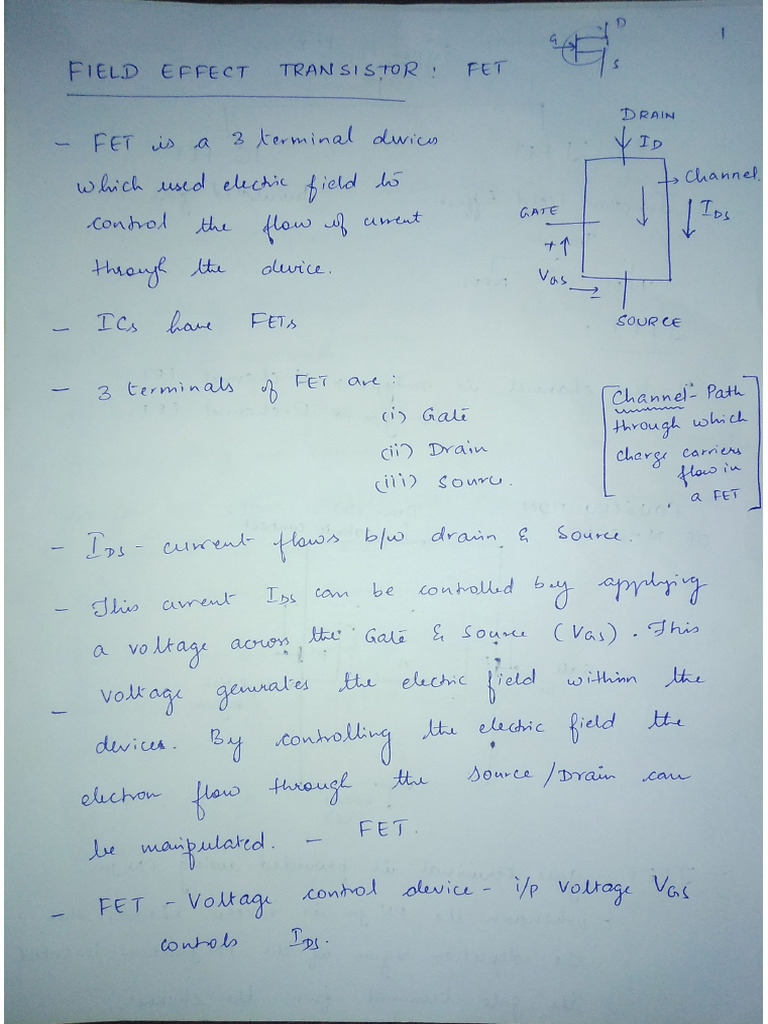 1
G D S
FIELD EFFECT TRANSISTOR: FET
- FET is a 3 terminal devices
which used electric field to
control the flow of current
through the device.
DRAIN
ID
Channel
GATE
IDS
+
VGS
-
SOURCE
- ICs have FETs
- 3 terminals of FET are:
(i) Gate
(ii) Drain
(iii) Source.
[Channel - Path
through which
charge carriers
flow in
a FET]
- IDS - current flows b/w drain & source.
- This current IDS can be controlled by applying
a voltage across the Gate & source (VGS). This
- voltage generates the electric field within the
devices. By controlling the electric field the
electron flow through the source/Drain can
be manipulated. - FET.
- FET - Voltage control device - i/p voltage VGS
controls IDS.